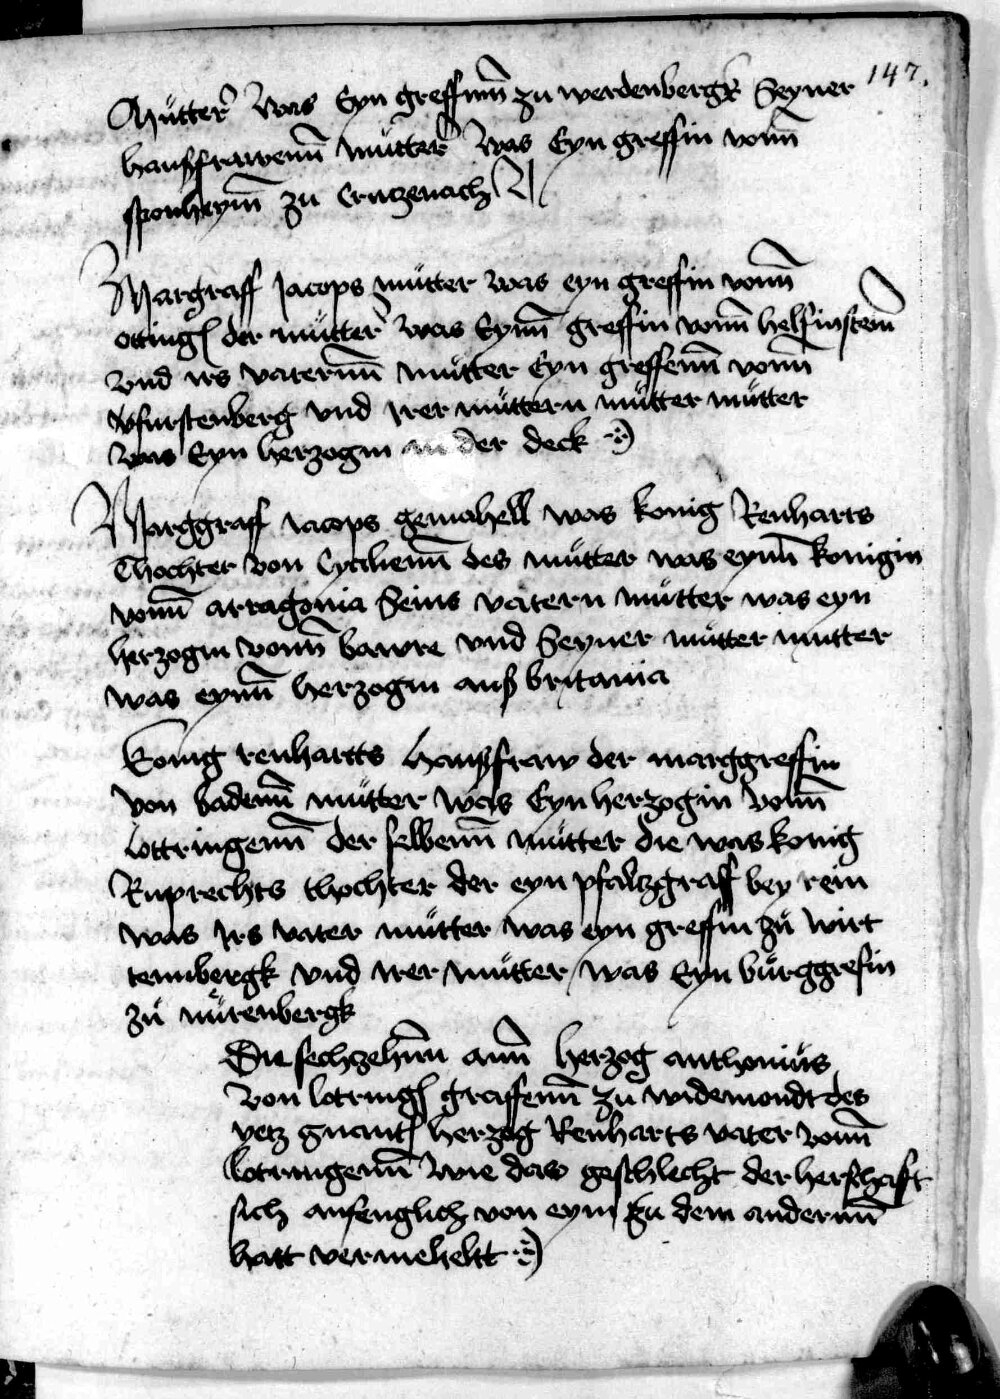 147.
Mütter was Eyn greffinn zu werdenbergk Seyner
haußfrawenn mütter was Eyn greffin vonn
sponheym zu Crutzenach
Margraff Jacops mütter was eyn greffin vonn
otting der mütter was Eynn greffin vonn helfinstein
vnd irs vaternn mütter Eyn greffenn vonn
furstenberg vnd irer müttern mütter mütter
was Eyn herzogin der deck
Marggraff Jacops gemahell was konig Renharts
Thochter von Cycilienn des mütter was eynn konigin
vonn arragonia Seins vatern mütter was eyn
herzogin vonn bawre vnd Seyner mütter mutter
was eynn herzogin auß britania
Konig renhartts haußfraw der marggreffin
von badenn mütter was Eyn herzogin vonn
Lottringenn der selbenn mütter die was konig
Ruprechts thochter der eyn pfaltzgraff bey rein
was Irs vater mütter was eyn greffin zü wirt
tennbergk vnd irer mütter was Eyn bürggrefin
zü nürenbergk
Die sechzehenn ann herzog anthonius
von lotring graffenn zu widemondt des
yetz gnant herzog Renharts vater vonn
lotringenn wie das geschlecht der herschafft
sich anfenglich von eym zu dem andernn
hatt vermeheltt